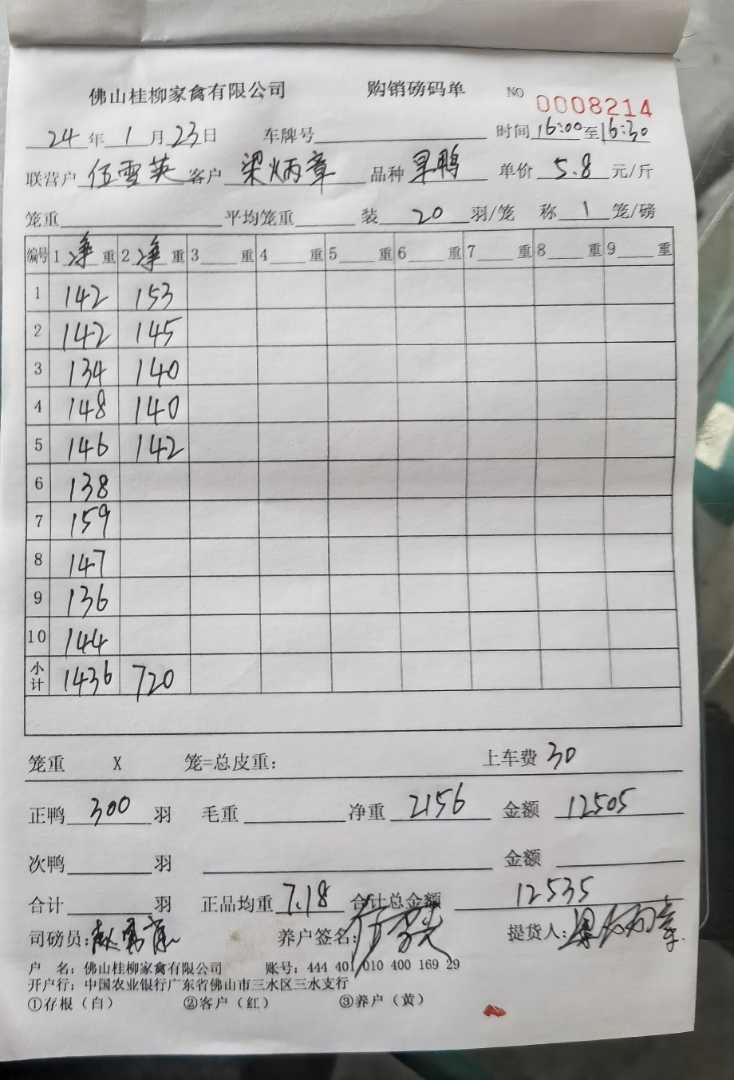 佛山桂柳家禽有限公司 购销磅码单 NO 0008214
24年1月23日 车牌号 时间16:00至16:30
联营户 伍雪英 客户 梁炳章 品种 旱鸭 单价 5.8 元/斤
笼重 平均笼重 装 20 羽/笼 称 1 笼/磅
编号 1 净 重 2 净 重 3 重 4 重 5 重 6 重 7 重 8 重 9 重
1 142 153
2 142 145
3 134 140
4 148 140
5 146 142
6 138
7 159
8 147
9 136
10 144
小计 1436 720
笼重 X 笼=总皮重: 上车费 30
正鸭 300 羽 毛重 净重 2156 金额 12505
次鸭 羽 金额
合计 羽 正品均重 7.18 合计总金额 12535
司磅员: 养户签名: 提货人: 梁炳章
户 名: 佛山桂柳家禽有限公司 账号: 444 401 010 400 169 29
开户行: 中国农业银行广东省佛山市三水区三水支行
①存根(白) ②客户(红) ③养户(黄)